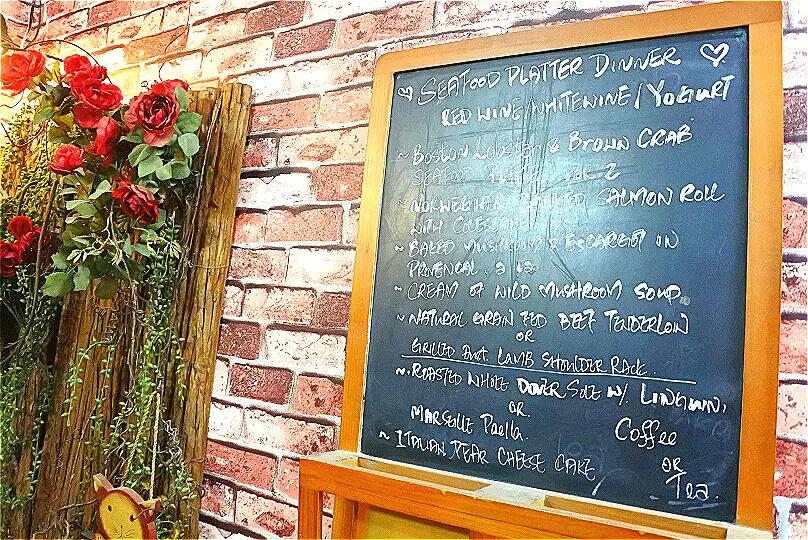 SEAFOOD PLATTER DINNER
RED WINE/WHITEWINE/YOGURT
~ BOSTON LOBSTER & BROWN CRAB
SEAFOOD FOR 2
~ NORWEGIAN SMOKED SALMON ROLL
WITH COLESLAW
~ BAKED MUSHROOM & ESCARGOT IN
PROVENCAL
~ CREAM OF WILD MUSHROOM SOUP
~ NATURAL GRAIN FED BEEF TENDERLOIN
OR
GRILLED LAMB SHOULDER RACK.
~ ROASTED WHOLE DOVER SOLE W/. LINGUINI
OR.
MARSEILLE Paella.
~ ITALIAN PEAR CHEESE CAKE
Coffee
OR
Tea.